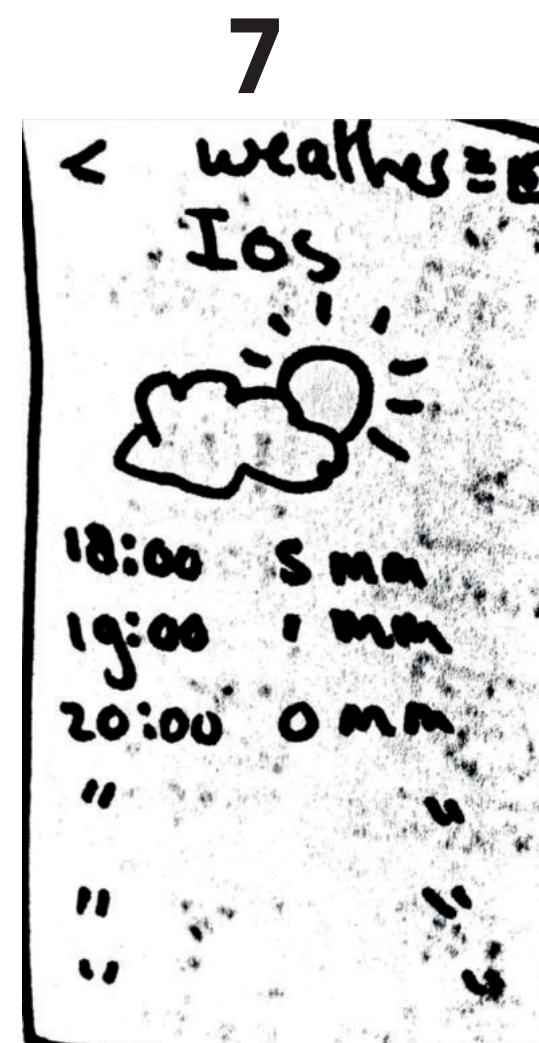 7
< weather
Ios
18:00 5 mm
19:00 1 mm
20:00 0 mm
" "
" "
" "